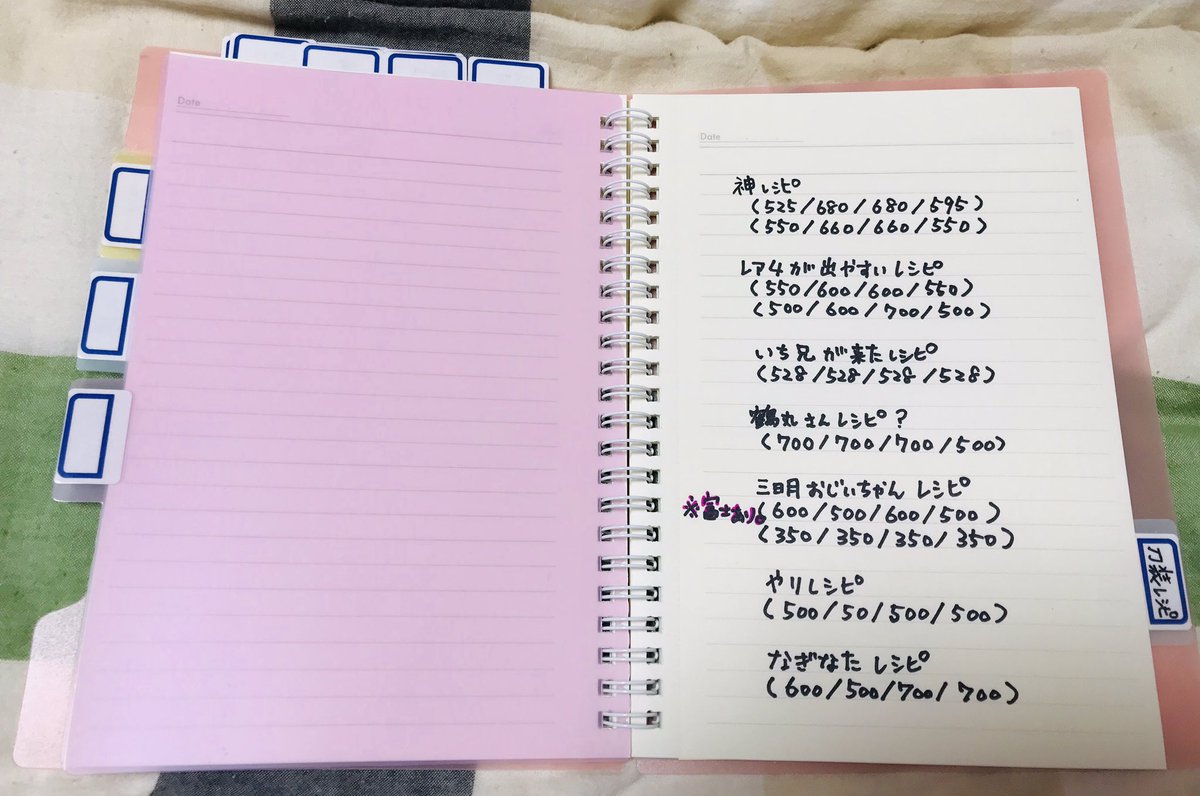 Date
Date
神レシピ
(525/680/680/595)
(550/660/660/550)
レア4が出やすいレシピ
(550/600/600/550)
(500/600/700/500)
いち兄が来たレシピ
(528/528/528/528)
鶴丸さんレシピ?
(700/700/700/500)
三日月おじいちゃんレシピ
※富士あり。(600/500/600/500)
(350/350/350/350)
やりレシピ
(500/50/500/500)
なぎなたレシピ
(600/500/700/700)
刀装レシピ